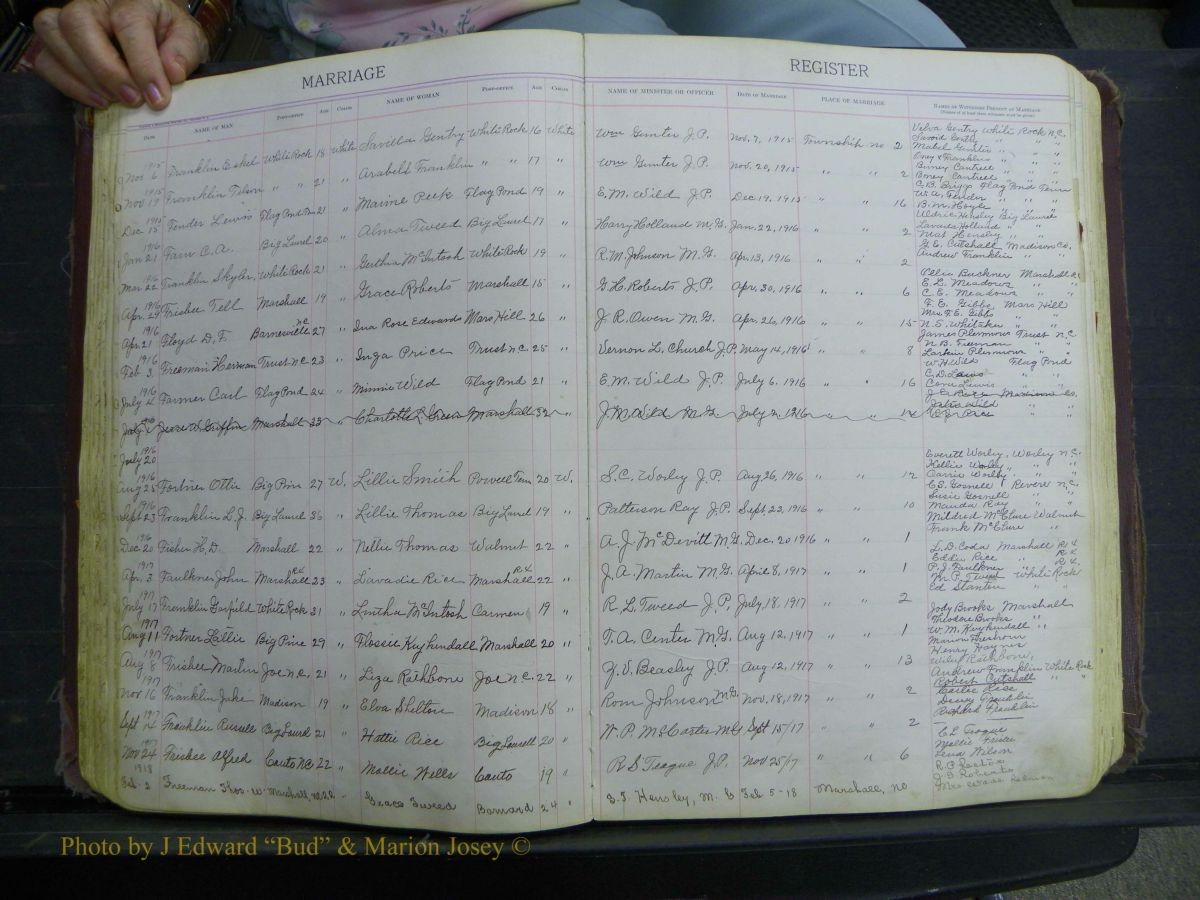 MARRIAGE REGISTER
DATE NAME OF MAN POST-OFFICE AGE COLOR NAME OF WOMAN POST-OFFICE AGE COLOR NAME OF MINISTER OR OFFICER DATE OF MARRIAGE PLACE OF MARRIAGE NAMES OF WITNESSES PRESENT AT MARRIAGE
1915 Nov 6 Franklin Eskel White Rock 18 White Savilla Gentry White Rock 16 White Wm Gunter J.P. Nov. 7, 1915 Township no 2 Velva Gentry White Rock n.c.
1915 Nov 19 Franklin Tilson " " 21 " Arabell Franklin " " 17 " Wm Gunter J.P. Nov. 20, 1915 " " 2
1915 Dec 15 Fender Lewis Flag Pond 21 " Maime Peek Flag Pond 19 " E.M. Wild J.P. Dec 19, 1915 " " 16 C.B. Briggs Flag Pond Tenn
W.A. Fender
B.M. Hoyle
1916 Jan 21 Fain C.A. Big Laurel 20 " Alma Tweed Big Laurel 17 " Harry Holland M.G. Jan. 22, 1916 " " 2 Hensley Big Laurel
1916 Mar 22 Franklin Skyler, White Rock 21 " Gertha McIntosh White Rock 19 " R.M. Johnson M.G. Apr. 13, 1916 " " 2 Cutshall Madison Co.
Andrew Franklin " "
1916 Apr. 29 Frisbee Tell Marshall 19 " Grace Roberts Marshall 15 " G.H. Roberts J.P. Apr. 30, 1916 " " 6 Celia Buckner Marshall
E.L. Meadows "
C.E. Meadows "
1916 Apr. 21 Floyd D.F. Barnesville NC 27 " Ina Rose Edwards Mars Hill 26 " J.R. Owen M.G. Apr. 26, 1916 " " 15 F.E. Gibbs, Mars Hill
Mrs. F.E. Gibbs
N.S. Whitaker
1916 Feb 3 Freeman Herman Trust N.C. 23 " Inga Price Trust n.c. 25 " Vernon L. Church J.P. May 14, 1916 " " 8 James Plemmons Trust n.c.
N.B. Freeman "
Larkin Plemmons "
1916 July 4 Farmer Carl Flag Pond 24 " Minnie Wild Flag Pond 21 " E.M. Wild J.P. July 6, 1916 " " 16 W.H. Wild Flag Pond
C.D. Lewis
Cora Lewis
Jesse W. Griffin Marshall 33 " Charlotte L. Green Marshall 32 " J.M. Wild M.G. July 2, 1916 " "
1916 July 20
1916 Aug 25 Fortner Ottis Big Pine 27 W. Lillie Smith Powell Tenn 20 W. S.C. Worley J.P. Aug 26, 1916 " " 12 Everett Worley, Worley n.c.
Kellie Worley "
Carrie Worley "
1916 Sept 23 Franklin L.J. Big Laurel 36 " Lillie Thomas Big Laurel 19 " Patterson Ray J.P. Sept 23, 1916 " " 10 C.S. Gosnell Revere n.c.
Susie Gosnell
Manda Ray
1916 Dec 20 Fisher H.D. Marshall 22 " Nellie Thomas Walnut 22 " A.J. McDevitt M.G. Dec. 20 1916 " " 1 Mildred McClure Walnut
Frank McClure "
1917 Apr. 3 Faulkner John Marshall R4 23 " Lavadie Rice Marshall R4 22 " J.A. Martin M.G. April 8, 1917 " " 1 L.D. Coda Marshall R4
Eddie Rice " R4
P.J. Faulkner " R4
1917 July 17 Franklin Garfield White Rock 21 " Lintha McIntosh Carmen 19 " R.L. Tweed J.P. July 18, 1917 " " 2 W.P. Tweed White Rock
Ed Stanton
1917 Aug 11 Fortner Lallie Big Pine 29 " Flossie Kuykendall Marshall 20 " T.A. Center M.G. Aug 12, 1917 " " 1 Jody Brooks Marshall
Theodore Brooks "
W.M. Kuykendall "
1917 Aug 8 Frisbee Martin Joe N.C. 21 " Liza Rathbone Joe N.C. 22 " J.V. Beasley J.P. Aug 12, 1917 " " 13
Henry Haynes
Wiley Rathbone
1917 Nov 16 Franklin Jake Madison 19 " Elva Shelton Madison 18 " Rom Johnson M.G. Nov. 18, 1917 " " 2 Andrew Franklin White Rock
Robert Cutshall " "
1917 Sept 2 Franklin Russell Big Laurel 21 " Hattie Rice Big Laurel 20 " W.P. McCarter M.G. Sept 15/17 " " 2
Dewey Franklin
Franklin
1917 Nov 24 Frisbee Alfred Canto N.C. 22 " Mollie Wells Canto 19 " R.S. Teague J.P. Nov 25/17 " " 6 C.L. Teague
Mollie
Lena Wilson
1918 Feb. 2 Freeman Thos. W. Marshall, N.C. 22 " Grace Tweed Barnard 24 " Hensley, M.G. Feb 5-18 Marshall, NC
J.B. Roberts
Photo by J Edward “Bud” & Marion Josey ©